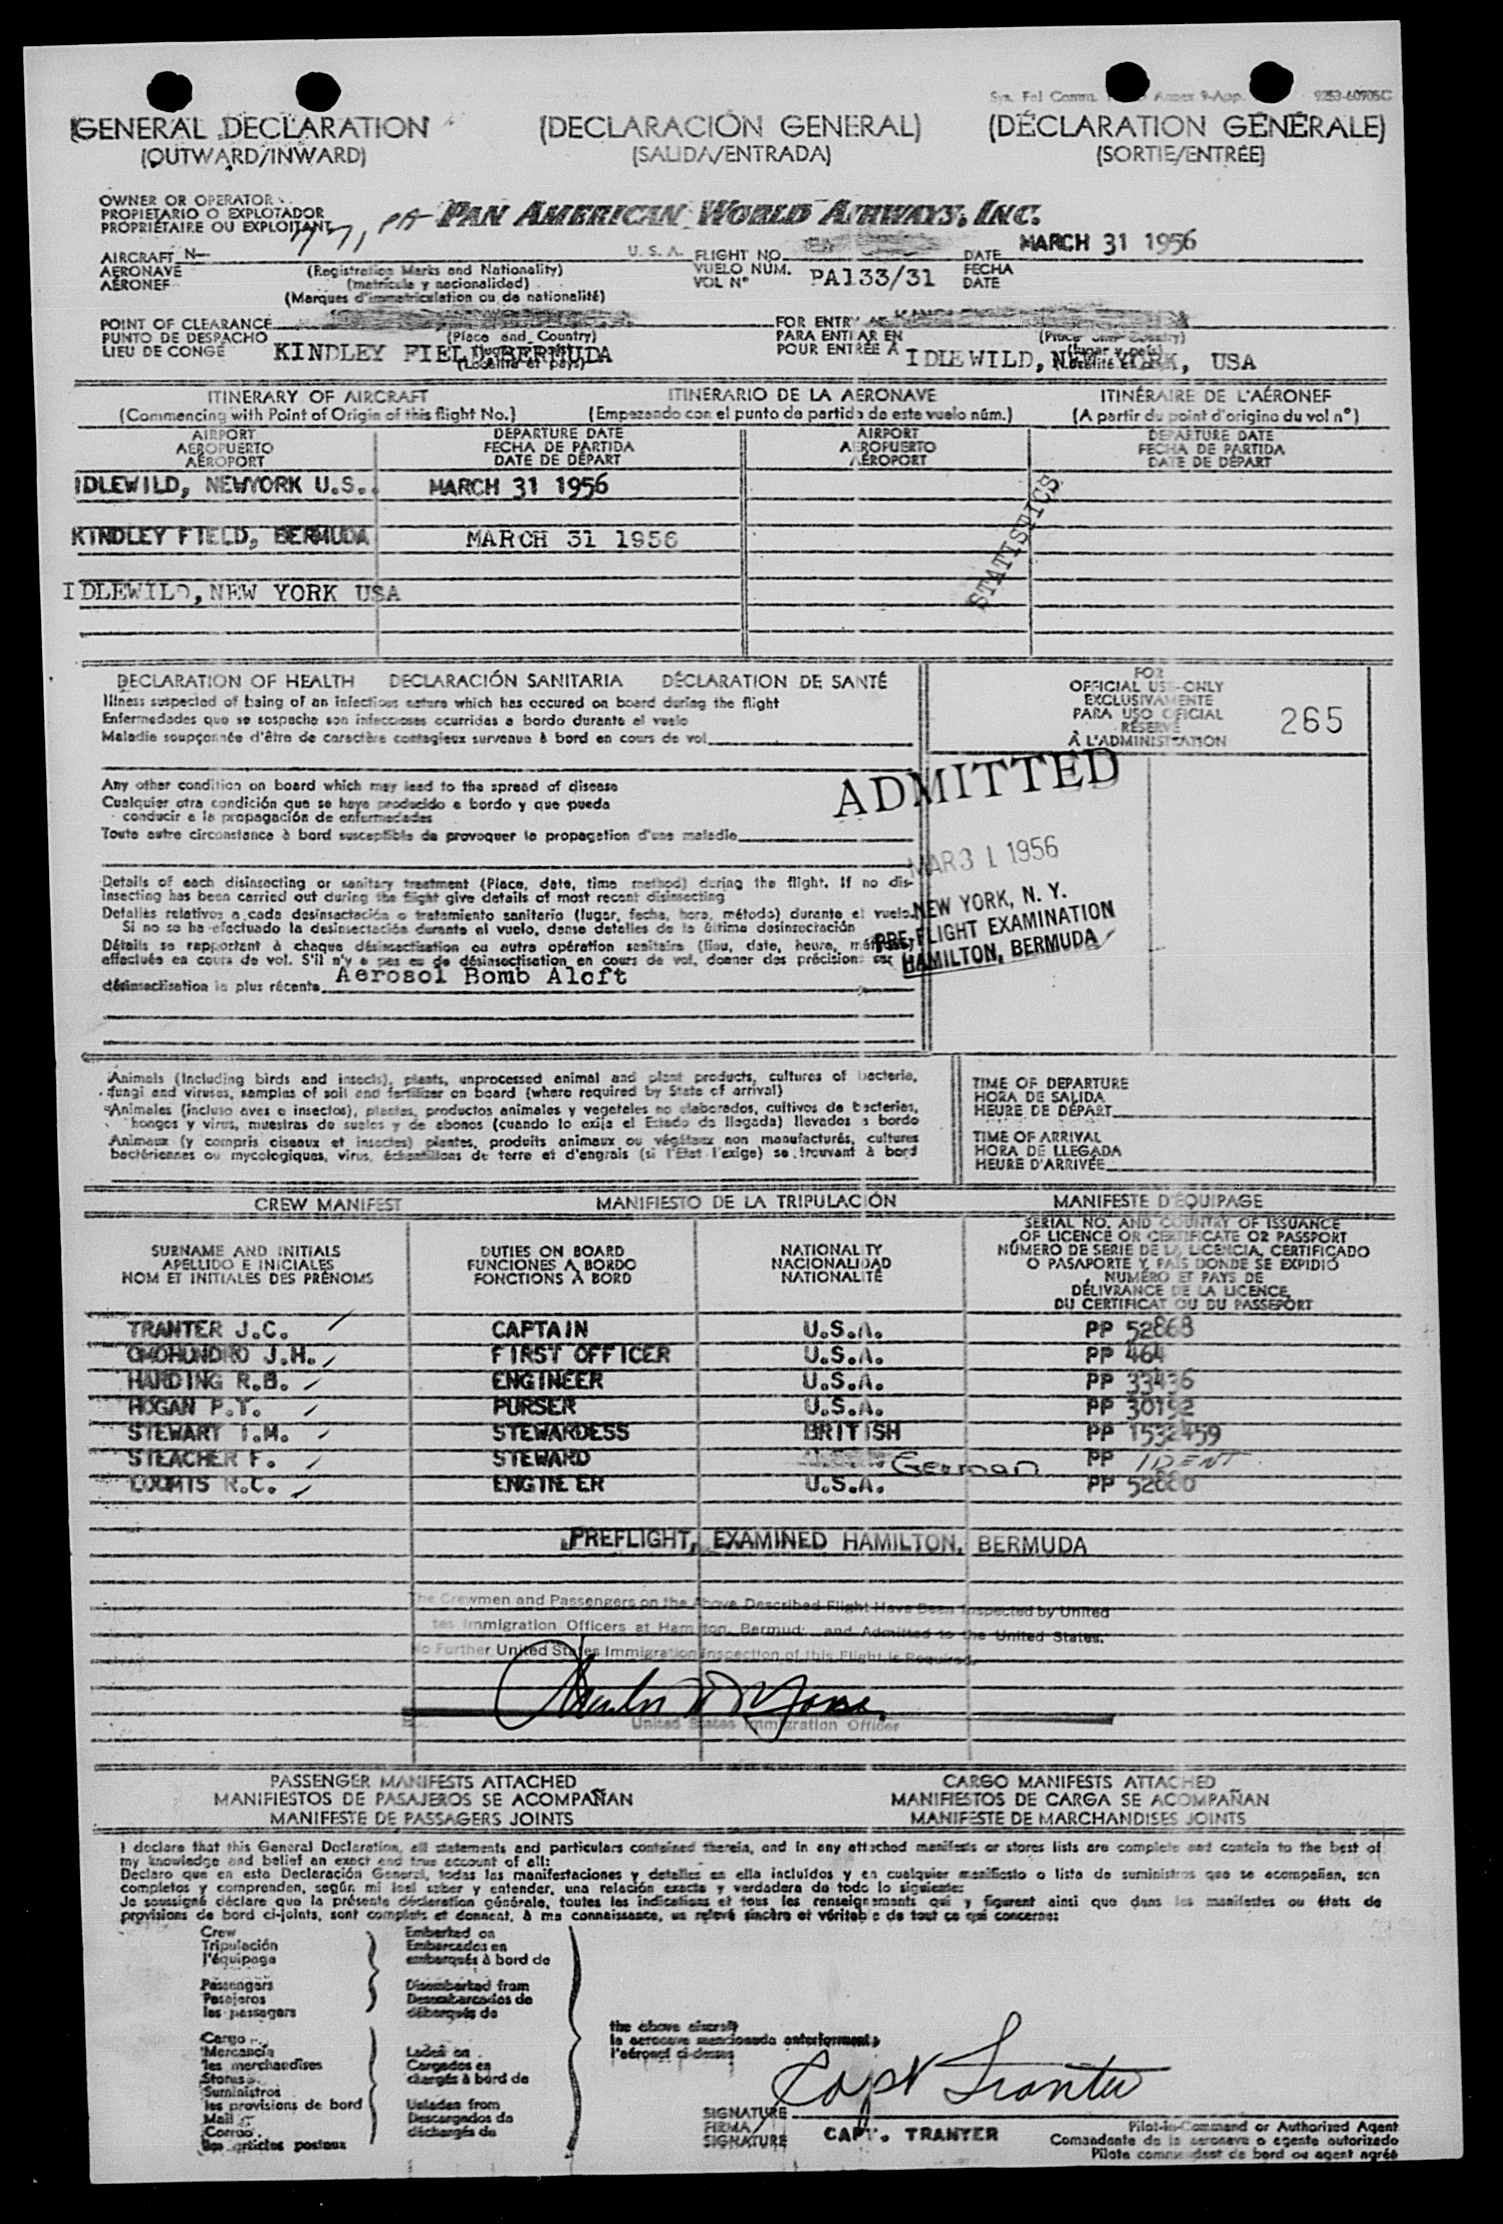 GENERAL DECLARATION (DECLARACIÓN GENERAL) (DÉCLARATION GÉNÉRALE)
(OUTWARD/INWARD) (SALIDA/ENTRADA) (SORTIE/ENTRÉE)
OWNER OR OPERATOR
PROPIETARIO O EXPLOTADOR
PROPRIÉTAIRE OU EXPLOITANT PAN AMERICAN WORLD AIRWAYS, INC.
AIRCRAFT N— U. S. A. FLIGHT NO. DATE MARCH 31 1956
AERONAVE (Registration Marks and Nationality) VUELO NÚM. PA133/31 FECHA
AÉRONEF (matrícula y nacionalidad) VOL N° DATE
(Marques d'immatriculation ou de nationalité)
POINT OF CLEARANCE FOR ENTRY AT
PUNTO DE DESPACHO (Place and Country) PARA ENTRAR EN
LIEU DE CONGÉ KINDLEY FIELD, BERMUDA POUR ENTRÉE À IDLEWILD, NEW YORK, USA
(Localité et pays)
ITINERARY OF AIRCRAFT ITINERARIO DE LA AERONAVE ITINÉRAIRE DE L'AÉRONEF
(Commencing with Point of Origin of this flight No.) (Empezando con el punto de partida de este vuelo núm.) (A partir du point d'origine du vol n°)
AIRPORT DEPARTURE DATE AIRPORT DEPARTURE DATE
AEROPUERTO FECHA DE PARTIDA AEROPUERTO FECHA DE PARTIDA
AÉROPORT DATE DE DÉPART AÉROPORT DATE DE DÉPART
IDLEWILD, NEWYORK U.S. MARCH 31 1956
KINDLEY FIELD, BERMUDA MARCH 31 1956
STATISTICS
IDLEWILD, NEW YORK USA
DECLARATION OF HEALTH DECLARACIÓN SANITARIA DÉCLARATION DE SANTÉ
Illness suspected of being of an infectious nature which has occured on board during the flight
Enfermedades que se sospecha son infecciosas ocurridas a bordo durante el vuelo
Maladie soupçonnée d'être de caractère contagieux survenue à bord en cours de vol
FOR
OFFICIAL USE ONLY
EXCLUSIVAMENTE
PARA USO OFICIAL
RÉSERVÉ
À L'ADMINISTRATION
265
Any other condition on board which may lead to the spread of disease
Cualquier otra condición que se haya producido a bordo y que pueda
conducir a la propagación de enfermedades
Toute autre circonstance à bord susceptible de provoquer la propagation d'une maladie
ADMITTED
MAR 31 1956
NEW YORK, N. Y.
PRE-FLIGHT EXAMINATION
HAMILTON, BERMUDA
Details of each disinsecting or sanitary treatment (Place, date, time method) during the flight. If no dis-
insecting has been carried out during the flight give details of most recent disinsecting
Detalles relativos a cada desinsectación o tratamiento sanitario (lugar, fecha, hora, método) durante el vuelo.
Si no se ha efectuado la desinsectación durante el vuelo, dense detalles de la última desinsectación
Détails se rapportant à chaque désinsectisation ou autre opération sanitaire (lieu, date, heure, méthode)
effectués en cours de vol. S'il n'y a pas eu de désinsectisation en cours de vol, donner des précisions sur
désinsectisation la plus récente Aerosol Bomb Aloft
Animals (Including birds and insects), plants, unprocessed animal and plant products, cultures of bacteria,
fungi and viruses, samples of soil and fertilizer on board (where required by State of arrival)
Animales (incluso aves e insectos), plantas, productos animales y vegetales no elaborados, cultivos de bacterias,
hongos y virus, muestras de suelos y de abonos (cuando lo exija el Estado de llegada) llevados a bordo
Animaux (y compris oiseaux et insectes) plantes, produits animaux ou végétaux non manufacturés, cultures
bactériennes ou mycologiques, virus, échantillons de terre et d'engrais (si l'État l'exige) se trouvant à bord
TIME OF DEPARTURE
HORA DE SALIDA
HEURE DE DÉPART
TIME OF ARRIVAL
HORA DE LLEGADA
HEURE D'ARRIVÉE
CREW MANIFEST MANIFIESTO DE LA TRIPULACIÓN MANIFESTE D'ÉQUIPAGE
SURNAME AND INITIALS
APELLIDO E INICIALES
NOM ET INITIALES DES PRÉNOMS
DUTIES ON BOARD
FUNCIONES A BORDO
FONCTIONS À BORD
NATIONALITY
NACIONALIDAD
NATIONALITÉ
SERIAL NO. AND COUNTRY OF ISSUANCE
OF LICENCE OR CERTIFICATE OR PASSPORT
NÚMERO DE SERIE DE LA LICENCIA, CERTIFICADO
O PASAPORTE Y PAÍS DONDE SE EXPIDIÓ
NUMÉRO ET PAYS DE
DÉLIVRANCE DE LA LICENCE,
DU CERTIFICAT OU DU PASSEPORT
TRANTER J.C. CAPTAIN U.S.A. PP 52868
OMOHUNDRO J.H. FIRST OFFICER U.S.A. PP 464
HARDING R.B. ENGINEER U.S.A. PP 33436
HOGAN P.Y. PURSER U.S.A. PP 30192
STEWART I.M. STEWARDESS BRITISH PP 1532459
STEACHER F. STEWARD German PP IDENT
LOOMIS R.C. ENGINEER U.S.A. PP 52880
PREFLIGHT, EXAMINED HAMILTON, BERMUDA
The Crewmen and Passengers on the Above Described Flight Have Been Inspected by United
States Immigration Officers at Hamilton, Bermuda and Admitted to the United States.
No Further United States Immigration Inspection of this Flight is Required.
United States Immigration Officer
PASSENGER MANIFESTS ATTACHED CARGO MANIFESTS ATTACHED
MANIFIESTOS DE PASAJEROS SE ACOMPAÑAN MANIFIESTOS DE CARGA SE ACOMPAÑAN
MANIFESTE DE PASSAGERS JOINTS MANIFESTE DE MARCHANDISES JOINTS
I declare that this General Declaration, all statements and particulars contained therein, and in any attached manifests or stores lists are complete and contain to the best of
my knowledge and belief an exact and true account of all:
Declaro que en esta Declaración General, todas las manifestaciones y detalles en ella incluídos y en cualquier manifiesto o lista de suministros que se acompañan, son
completos y comprenden, según mi leal saber y entender, una relación exacta y verdadera de todo lo siguiente:
Je soussigné déclare que la présente déclaration générale, toutes les indications et tous les renseignements qui y figurent ainsi que dans les manifestes ou états de
provisions de bord ci-joints, sont complets et donnent, à ma connaissance, un relevé sincère et véritable de tout ce qui concerne:
Crew Embarked on
Tripulación Embarcados en
l'équipage embarqués à bord de
Passengers Disembarked from
Pasajeros Desembarcados de
les passagers débarqués de
the above aircraft
la aeronave mencionada anteriormente
l'aéronef ci-dessus
Cargo
Mercancía Laden on
les merchandises Cargados en
Stores chargés à bord de
Suministros
les provisions de bord Unladen from
Mail Descargados de
Correo déchargés de
les articles postaux
Capt Tranter
SIGNATURE
FIRMA CAPT. TRANTER
SIGNATURE
Pilot-in-Command or Authorized Agent
Comandante de la aeronave o agente autorizado
Pilote commandant de bord ou agent agréé